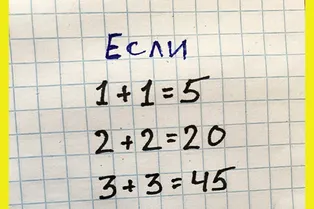 Если
1+1=5
2+2=20
3+3=45